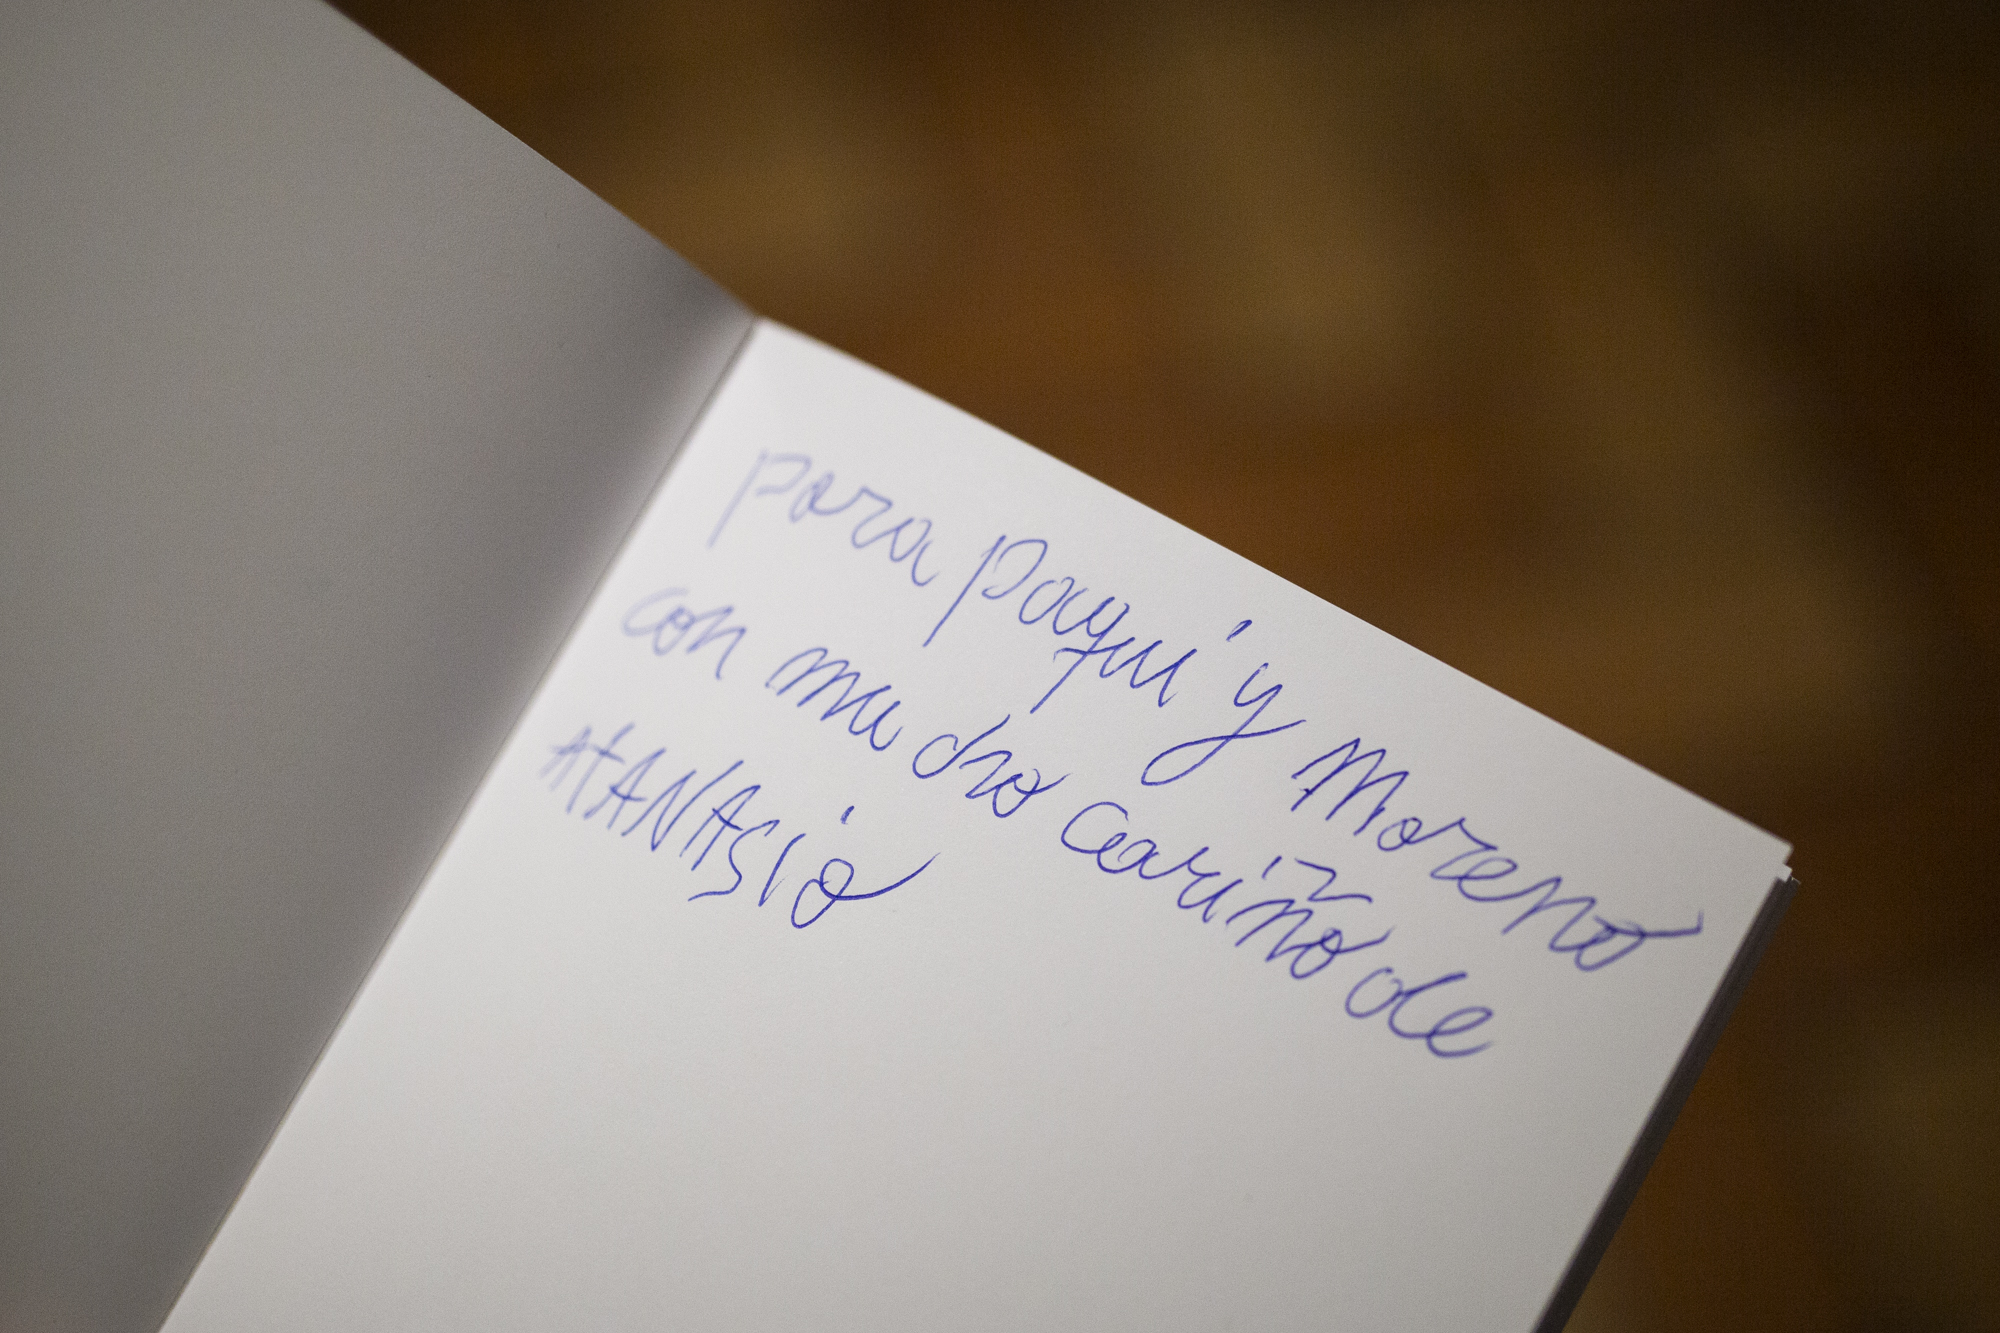 para paqui y Moreno
con mucho cariño de
ATANASio